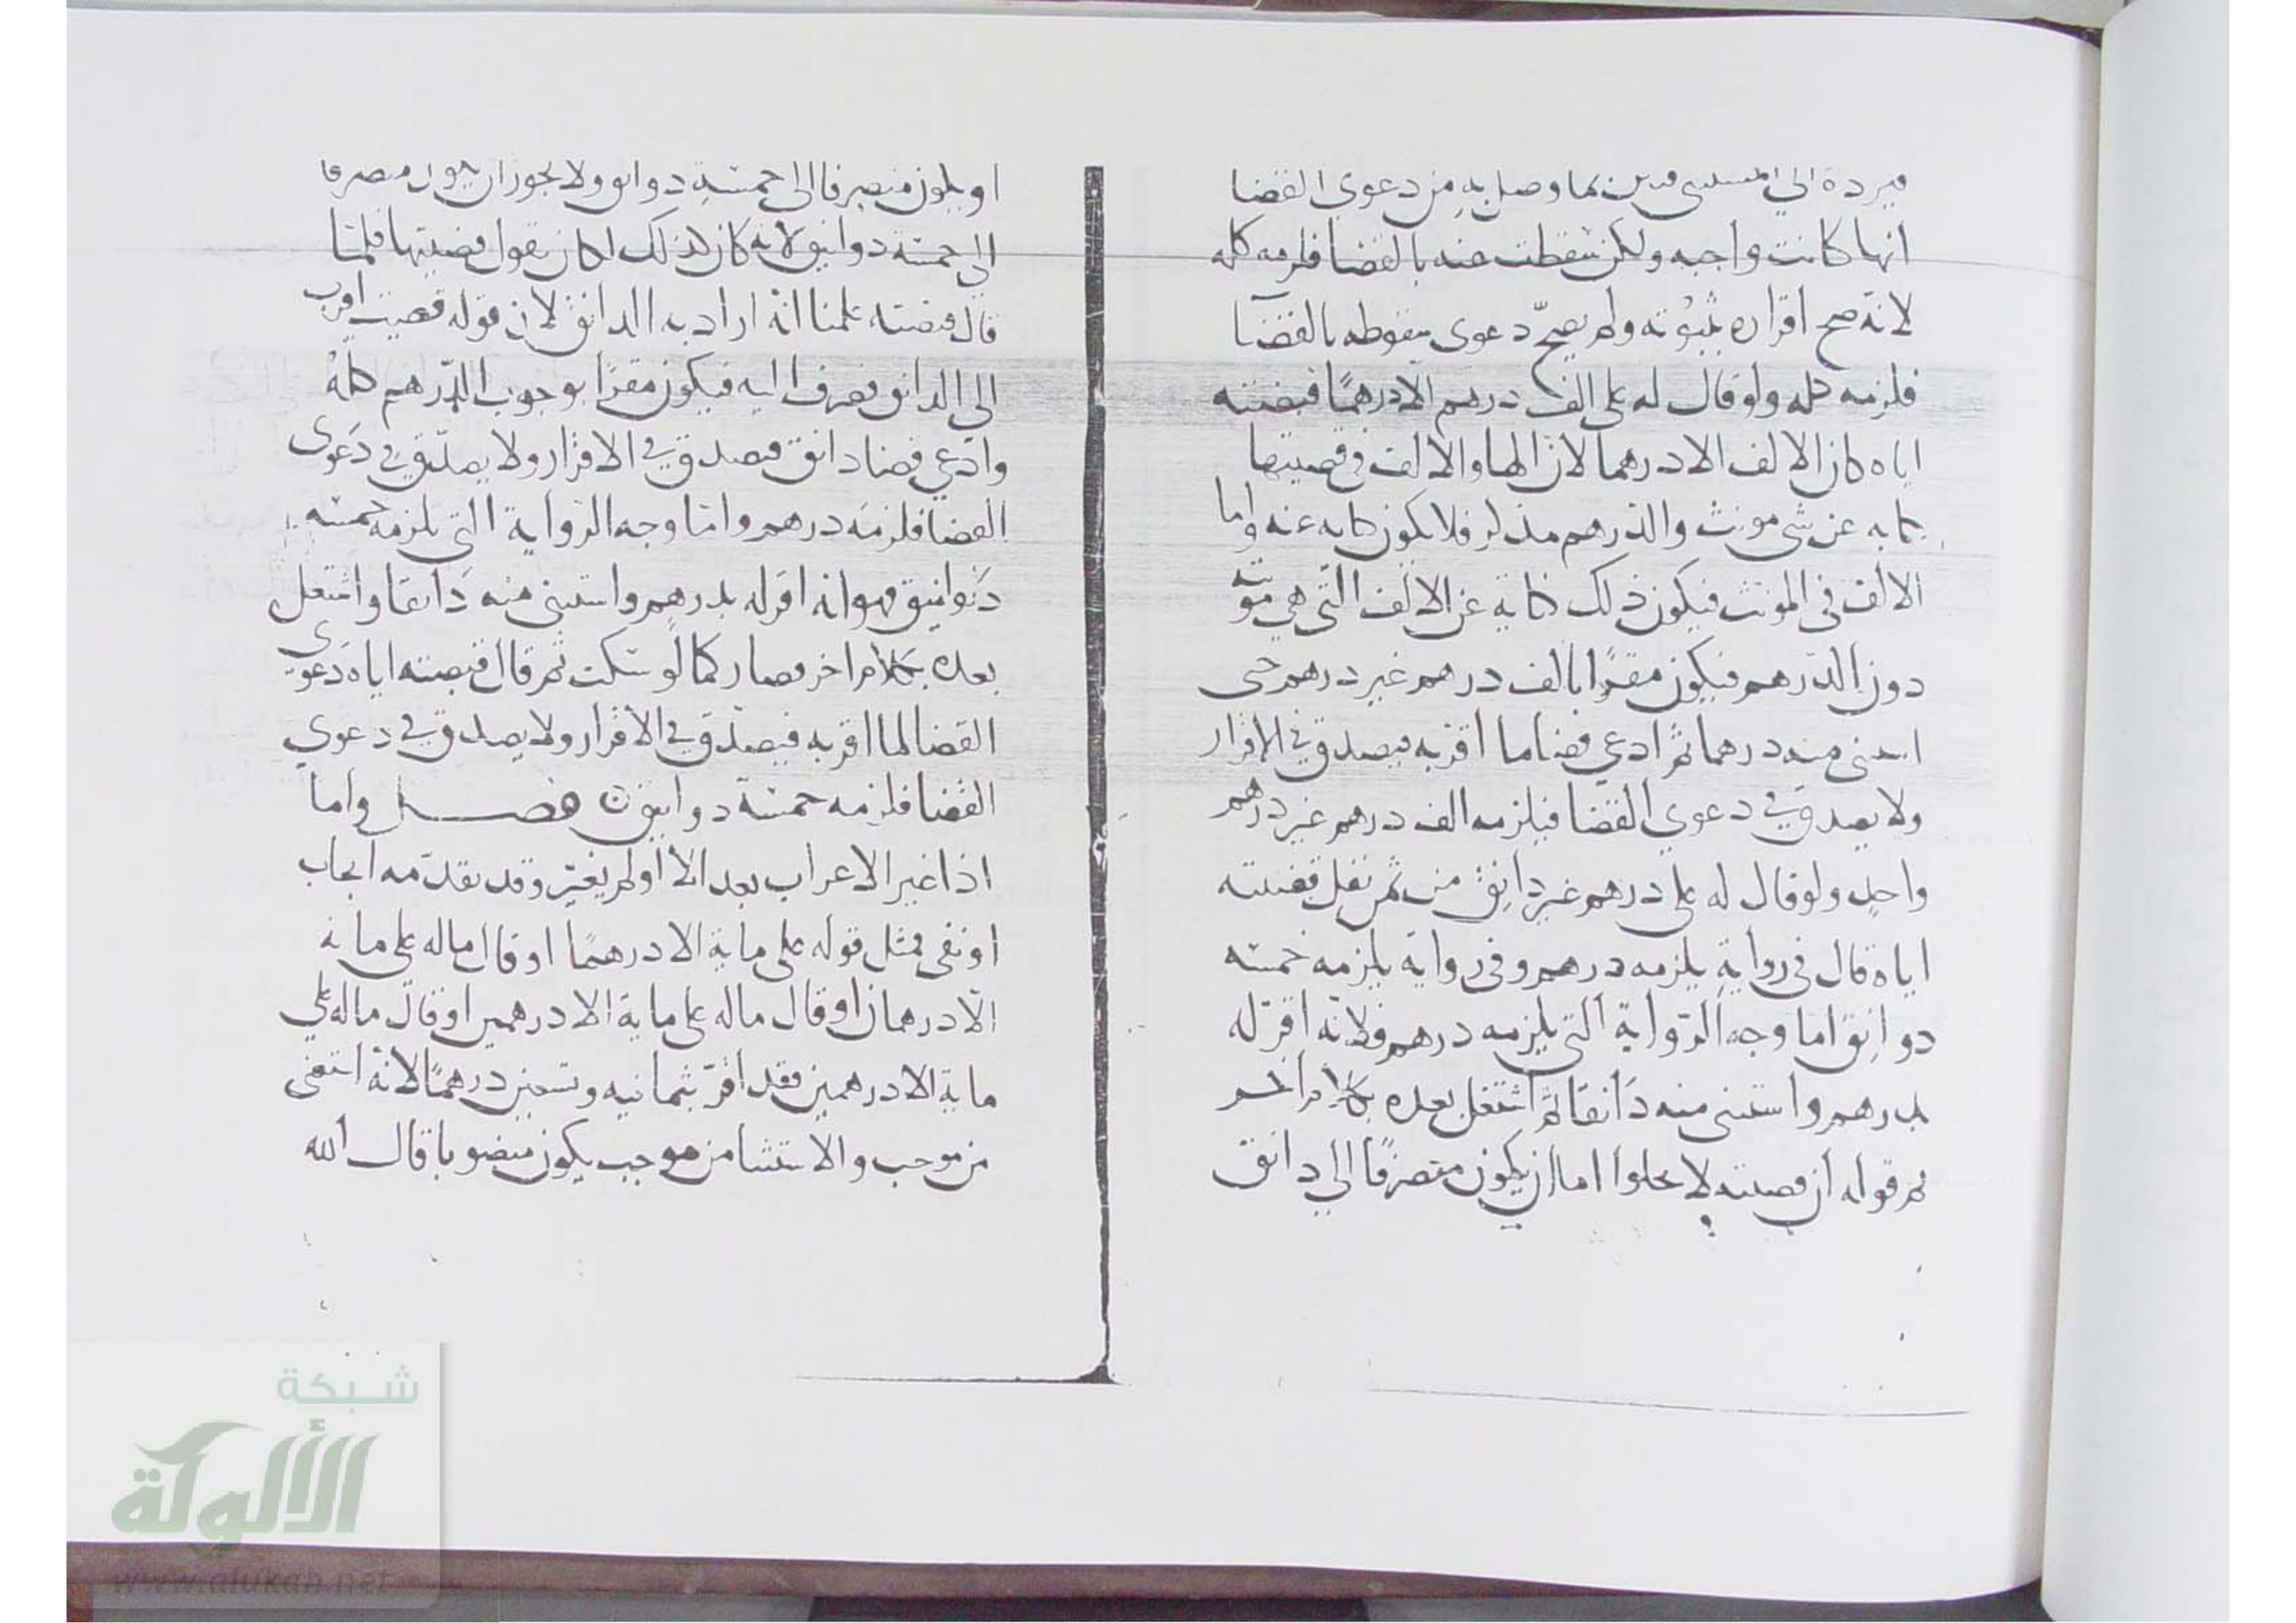 فيرده الي المستثنى فبين بما وصل به من دعوي القضا
انها كانت واجبه ولكن سقطت عنه بالقضا فلزمه كله
لانه صح اقراره بثبوته ولم يصحّ دعوى سقوطه بالقضا
فلزمه كله ولو قال له على الف درهم الا درهمًا قبضته
اياه كان الالف الا درهما لان الها والالف في قضيتها
كنايه عن شي مونث والدرهم مذكر فلا يكون كنايه عنه واما
الالف في المونث فيكون ذلك كناية عن الالف التي هي مونثه
دون الدرهم فيكون مقرًا بالف درهم غير درهم حتى
استثنى منه درهما ثم ادعي قضا ما اقر به فيصدق في الاقرار
ولا يصدق في دعوي القضا فيلزمه الف درهم غير درهم
واحد ولو قال له على درهم غير دانق من ثمن بقل قضيته
اياه قال في رواية يلزمه درهم وفي رواية يلزمه خمسه
دوانق اما وجه الرّواية التي يلزمه درهم فلانه اقرّ له
بدرهم واستثنى منه دَانقا ثم اشتغل بعده بكلام اخر
ثم قوله ان قضيته لا يخلوا اما ان يكون منصرفًا الي دانق
او يكون منصرفا الى خمسة دوانق ولا يجوز ان يكون منصرفا
الى خمسة دوانيق لانه كان لذلك لكان يقول قضيتها فلما
قال قضيته علمنا انه اراد به الدانق لان قوله قضيت اقرب
الى الدانق فصرف اليه فيكون مقرًا بوجوب الدّرهم كله
وادّعي قضا دانق فيصدق في الاقرار ولا يصدّق في دَعوى
القضا فلزمه درهم وامّا وجه الرّواية التي يلزمه خمسه
دَوانيق فهو انه اقر له بدرهم واستثنى منه دَانقا واشتغل
بعده بكلام اخر فصار كما لو سكت ثم قال قبضته اياه دَعوى
القضا لما اقر به فيصدّق في الاقرار ولا يصدق في دعوي
القضا فلزمه خمسة دوانيق فصل واما
اذا غير الاعراب بعد الا او لم يغيّر وقد تقدّمه ايجاب
او نفى فمثل قوله على ماية الا درهمًا او قال ماله على مايه
الّا درهمان او قال ماله على ماية الا درهمين او قال ماله علي
ماية الا درهمين فقد اقرّ بثمانيه وتسعين درهمًا لانه استثنى
من موجب والاستثنا من موجب يكون منصوبا قال الله
شبكة
الألوكة
www.alukah.net